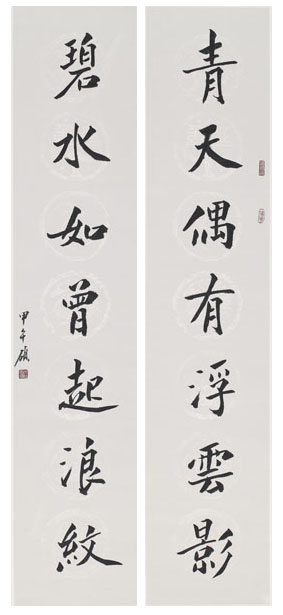 青天偶有浮雲影
碧水如曾起浪紋
甲午碩